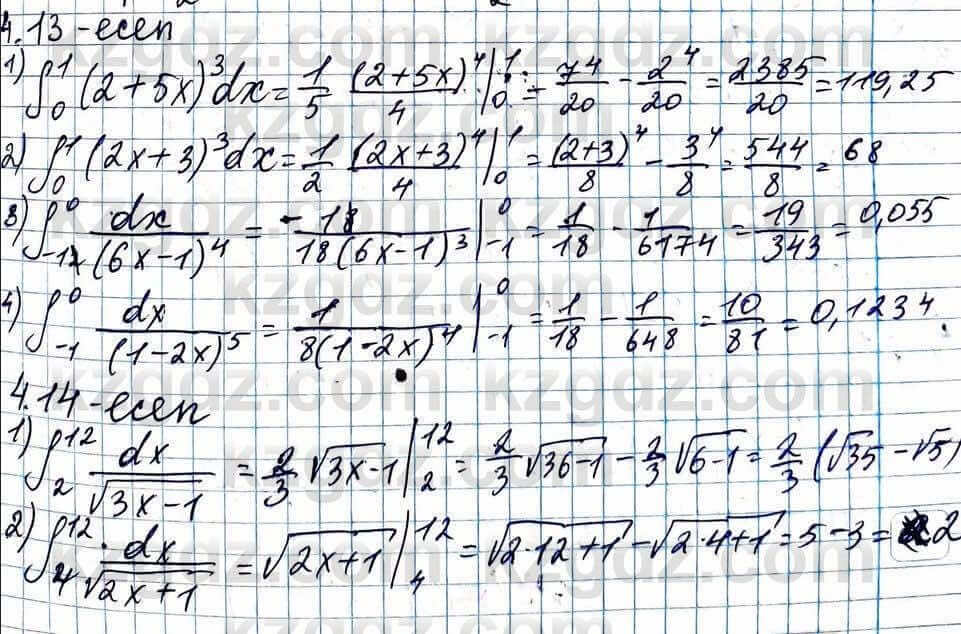 4.13-есеп
1) ∫₀¹ (2+5x)³dx = 1/5 (2+5x)⁴/4 |₀¹ = 7⁴/20 - 2⁴/20 = 2385/20 = 119,25
2) ∫₀¹ (2x+3)³dx = 1/2 (2x+3)⁴/4 |₀¹ = (2+3)⁴/8 - 3⁴/8 = 544/8 = 68
3) ∫₋₁⁰ dx/(6x-1)⁴ = -18/18(6x-1)³ |₋₁⁰ = 1/18 - 1/6174 = 19/343 = 0,055
4) ∫₋₁⁰ dx/(1-2x)⁵ = 1/8(1-2x)⁴ |₋₁⁰ = 1/18 - 1/648 = 10/81 = 0,1234
4.14-есеп
1) ∫₂¹² dx/√(3x-1) = 2/3 √(3x-1) |₂¹² = 2/3 √(36-1) - 2/3 √(6-1) = 2/3 (√35 - √5)
2) ∫₄¹² dx/√(2x+1) = √(2x+1) |₄¹² = √(2·12+1) - √(2·4+1) = 5-3 = 2
kzgdz.com